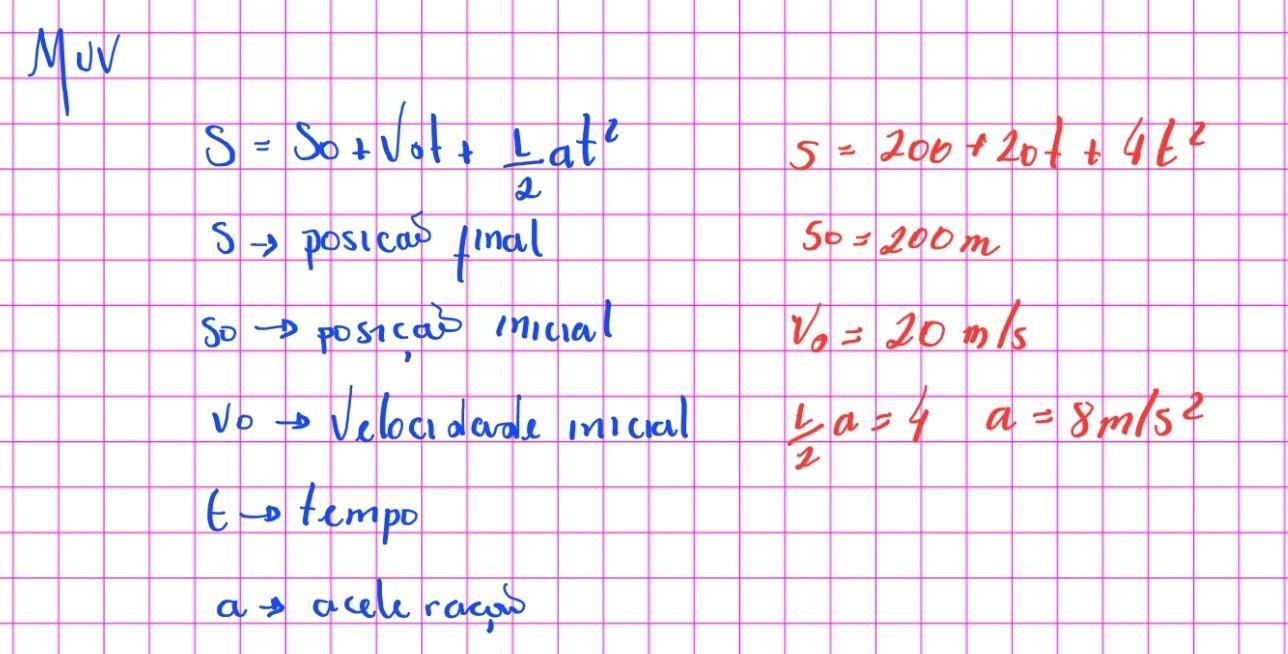 MUV
S = So + Vot + 1/2 at²
S → posicão final
so → posição inicial
vo → Velocidade inicial
t → tempo
a → aceleração
S = 200 + 20t + 4t²
So = 200 m
Vo = 20 m/s
1/2 a = 4 a = 8 m/s²